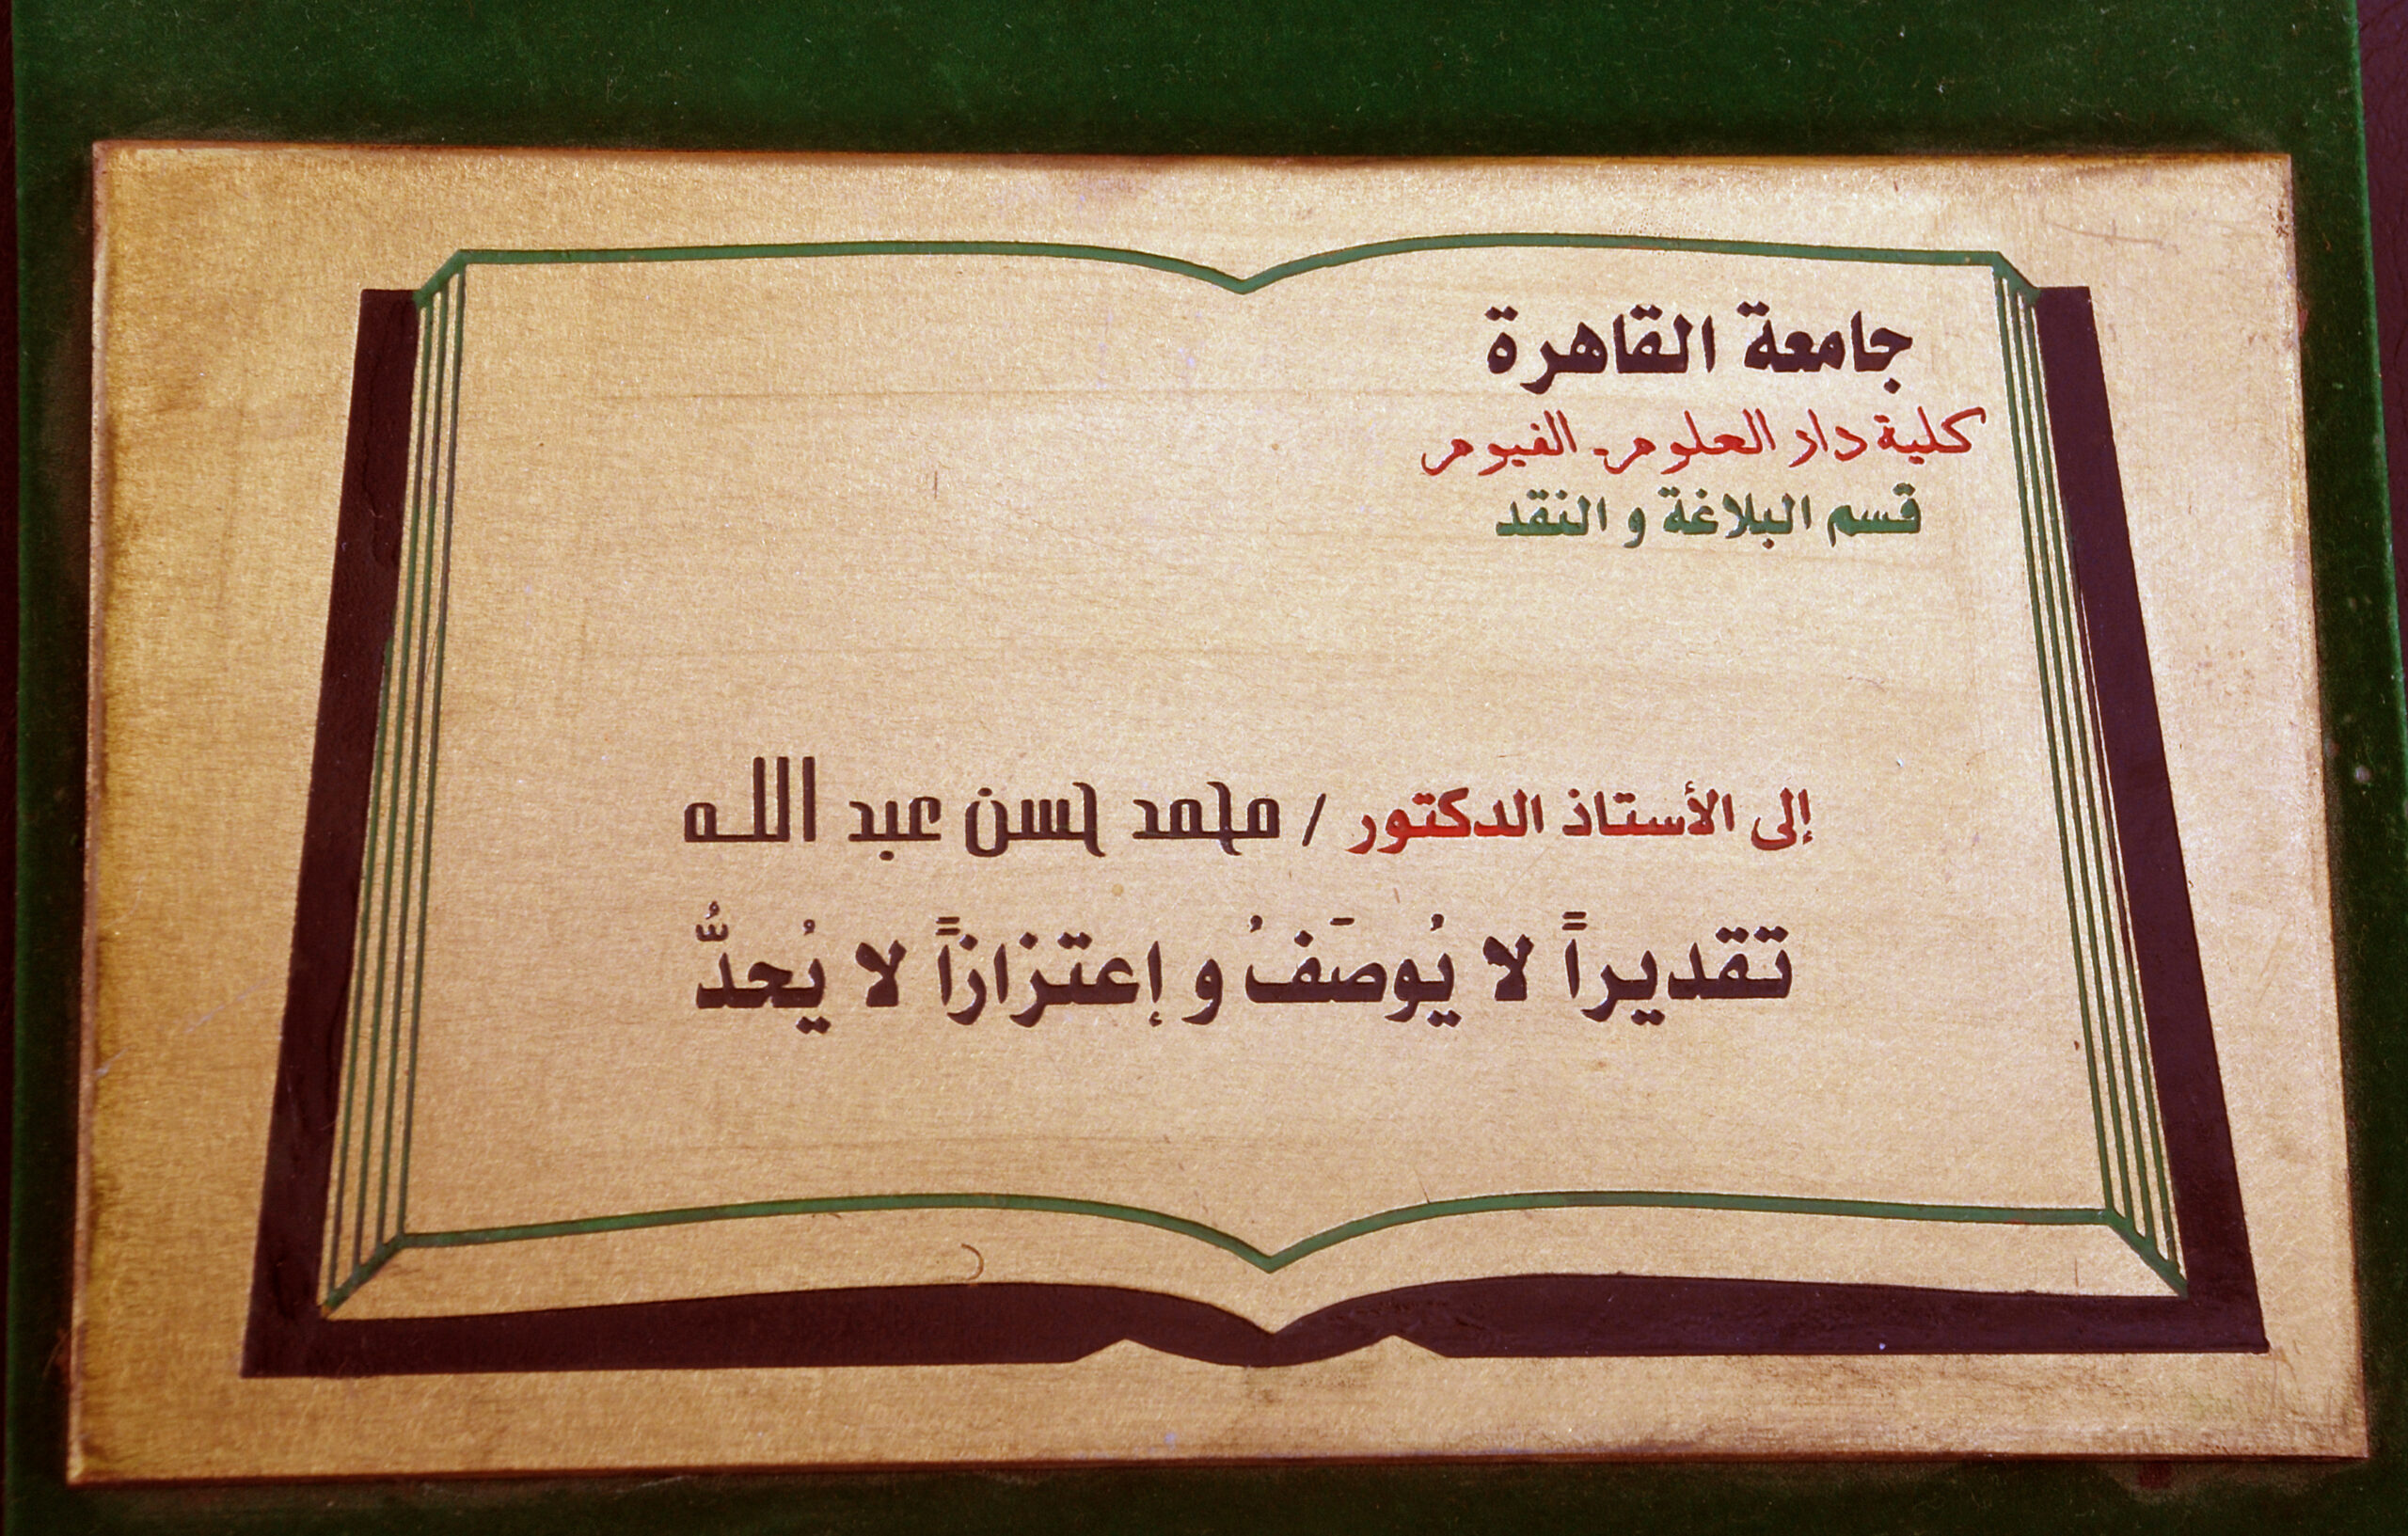 جامعة القاهرة
كلية دار العلوم - الفيوم
قسم البلاغة و النقد
إلى الأستاذ الدكتور / محمد حسن عبد الله
تقديراً لا يُوصَفُ و إعتزازاً لا يُحدُّ